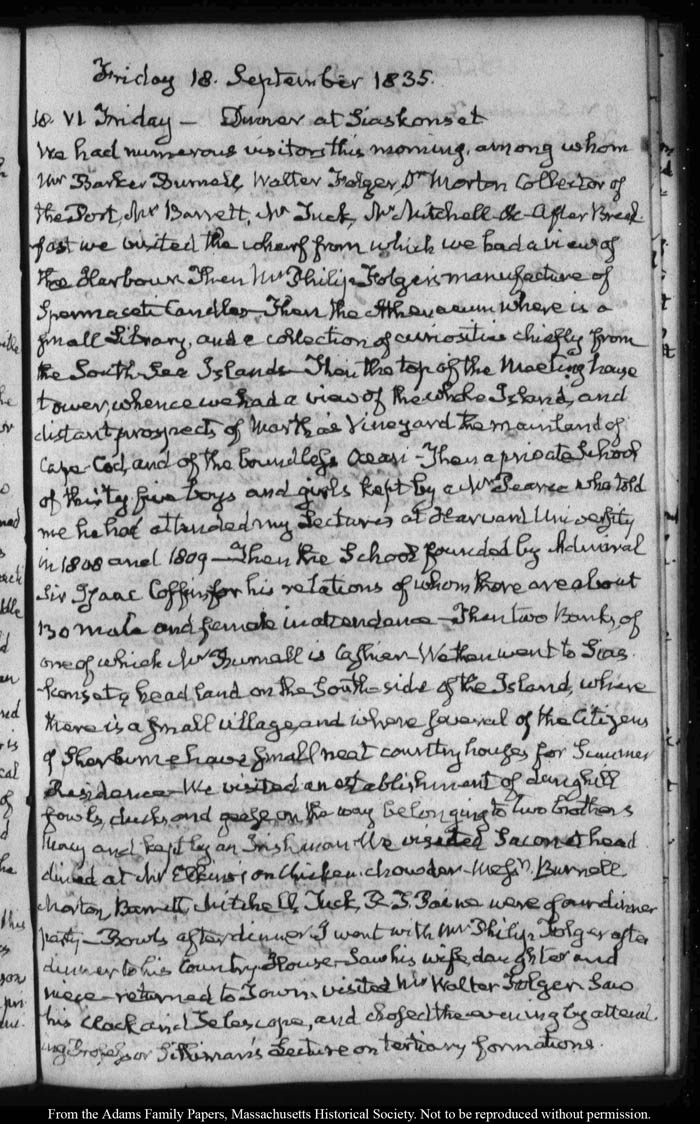 Friday 18. September 1835.
18. VI. Friday — Dinner at Siaskonset
We had numerous visitors this morning, among whom
Mr Barker Burnell, Walter Folger, Dr Morton Collector of
the Port, Mr Barrett, Mr Tuck, Mr Mitchell &c. After Break-
fast we visited the wharf from which we had a view of
the Harbour. Then Mr Philip Folger's manufacture of
Spermaceti Candles. Then the Athenaeum where is a
small Library, and a collection of curiosities chiefly from
the South-Sea Islands. Then the top of the Meeting house
tower, whence we had a view of the whole Island, and
distant prospects of Martha's Vineyard the mainland of
Cape-Cod, and of the boundless Ocean - Then a private School
of thirty five boys and girls kept by a Mr Pearce who told
me he had attended my Lectures at Harvard University
in 1808 and 1809 — Then the School founded by Admiral
Sir Isaac Coffin for his relations of whom there are about
130 male and female in attendance — Then two Banks, of
one of which Mr Burnell is Cashier. We then went to Sias-
konset a head land on the South-side of the Island, where
there is a small village, and where several of the Citizens
of Sherburne have small neat country houses for Summer
Residence — We visited an establishment of dunghill
fowls, ducks, and geese, on the way belonging to two brothers
Macy and kept by an Irishman. We visited Saconet head
dined at Mr Elkins's on Chicken-chowder. Messrs. Burnell
Morton, Barrett, Mitchell, Tuck, R. T. Paine were of our dinner
party — Bowls after dinner. I went with Mr Philip Folger after
dinner to his Country-House. Saw his wife, daughter and
niece — returned to Town, visited Mr Walter Folger. Saw
his clock and Telescope, and closed the evening by attend-
ing Professor Silliman's Lecture on tertiary formations.
From the Adams Family Papers, Massachusetts Historical Society. Not to be reproduced without permission.